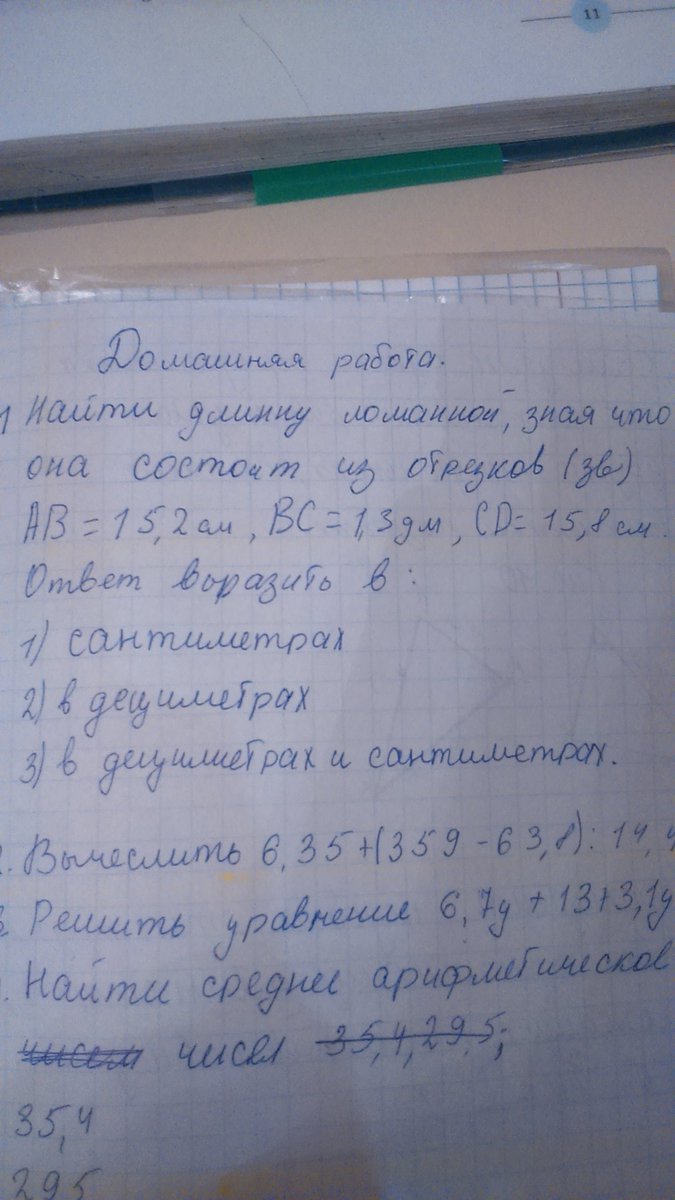 11
Домашняя работа.
1 Найти длинну ломанной, зная что
она состоит из отрезков (зв)
AB = 15,2 см, BC = 1,3 дм, CD = 15,8 см.
Ответ выразить в:
1) сантиметрах
2) в дециметрах
3) в дециметрах и сантиметрах.
2. Вычеслить 6,35+(359-63,8):14,4
3. Решить уравнение 6,7y + 13+3,1y
. Найти среднее арифметическое
чисел чисел 35,4,29,5;
35,4
295